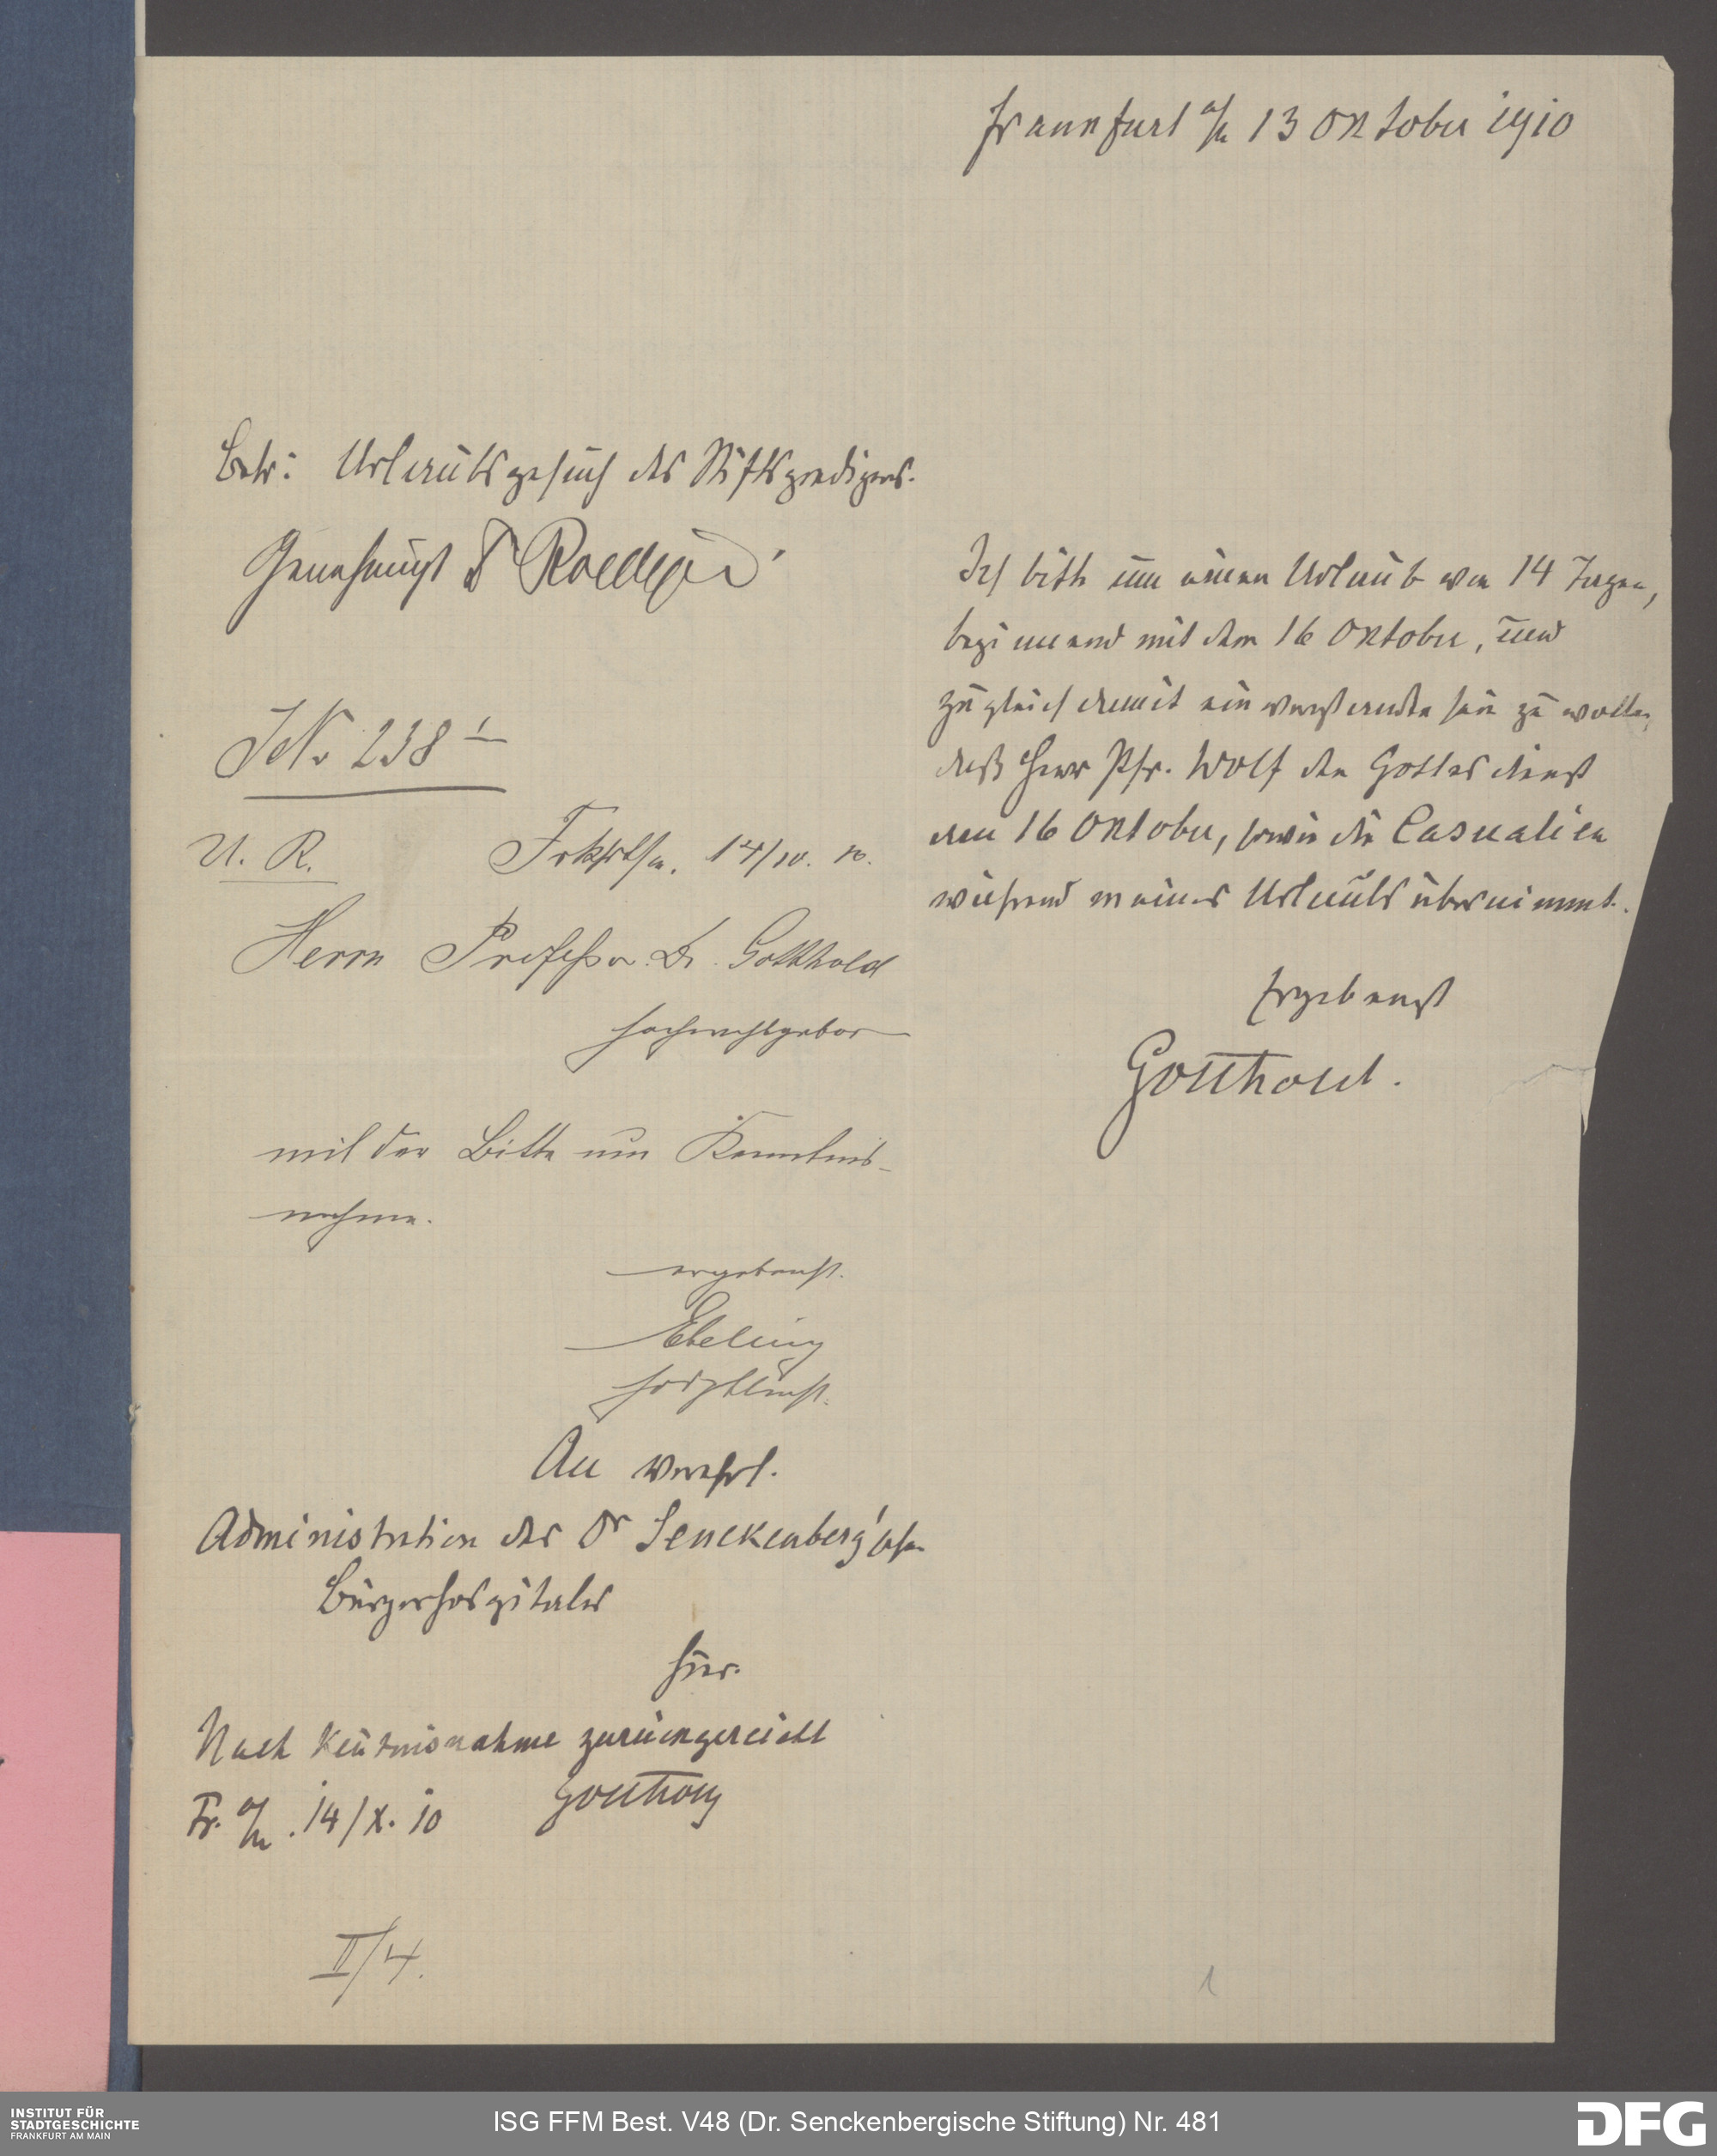 Frankfurt a/M 13 Oktober 1910
Betr: Urlaubsgesuch des Stiftspredigers.
Genehmigt Dr Roediger
Ich bitte um einen Urlaub von 14 Tagen,
beginnend mit dem 16 Oktober, und
zugleich damit einverstanden sein zu wollen,
daß Herr Pfr. Wolf den Gottesdienst
am 16 Oktober, sowie die Casualien
während meines Urlaubs übernimmt.
Ergebenst
Gotthold.
JNo 238
U. R. Frkfrt/m. 14/10. 10.
Herrn Professor Dr. Gotthold
Hochwohlgebor
mit der Bitte um Kenntnis-
nahme.
ergebenst.
Ebeling
An verehrl.
Administration des Dr Senckenberg'schen
Bürgerhospitales
hier.
Nach Kentnisnahme zurückgereicht
Fr. a/M. 14/X. 10 Gotthold
II/4.
1
INSTITUT FÜR
STADTGESCHICHTE
FRANKFURT AM MAIN
ISG FFM Best. V48 (Dr. Senckenbergische Stiftung) Nr. 481
DFG